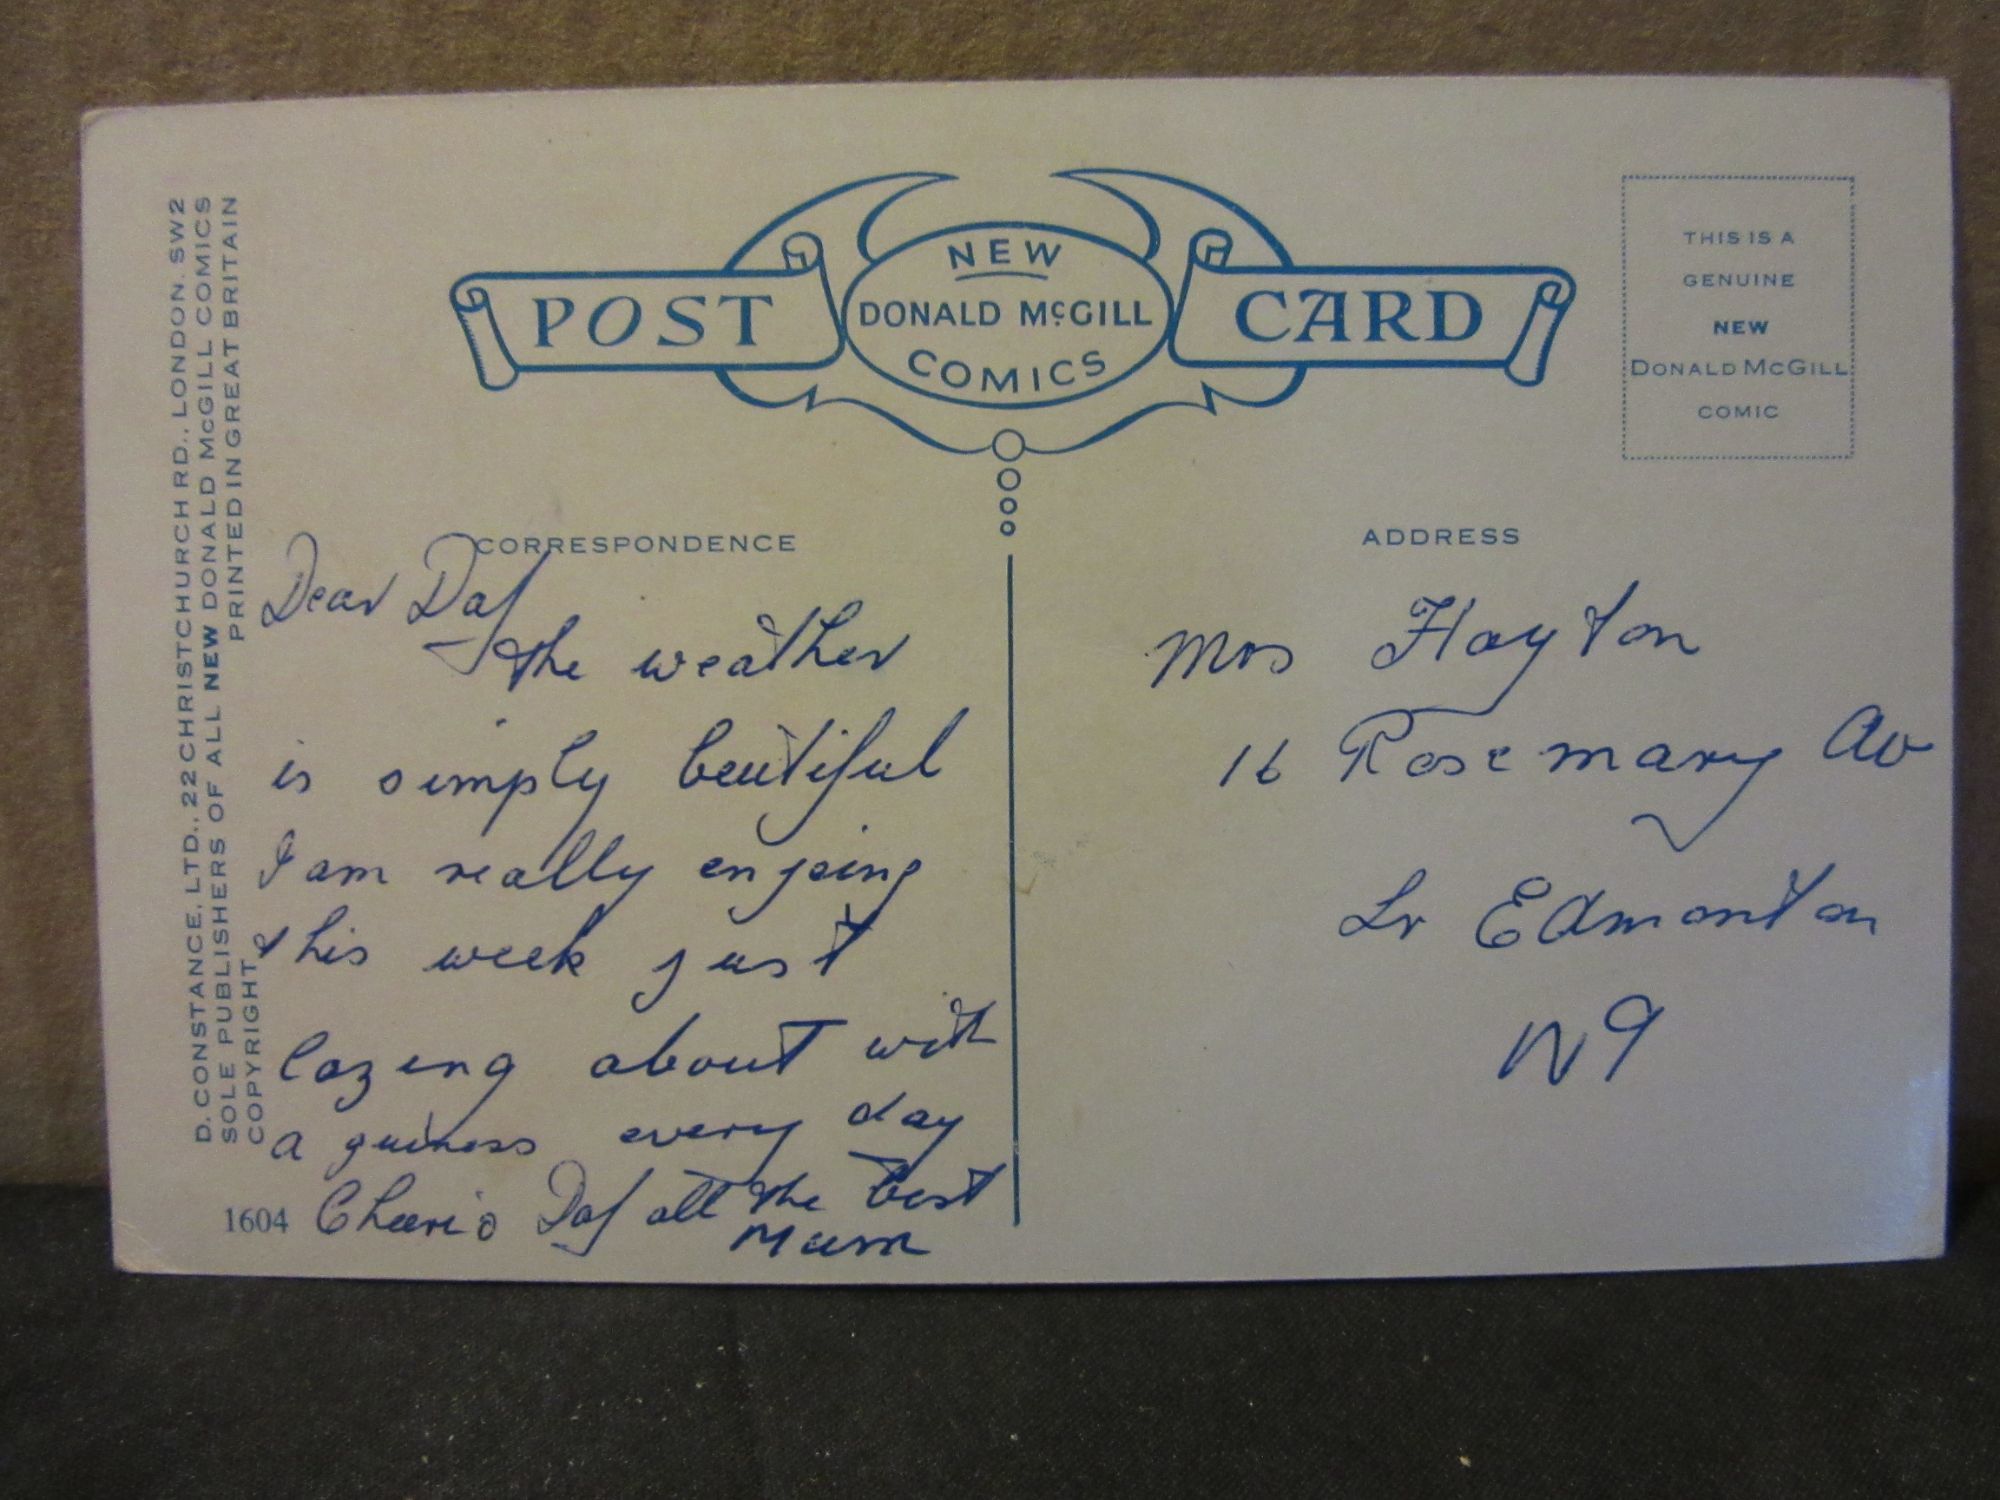 POST
NEW
DONALD McGILL
COMICS
CARD
THIS IS A
GENUINE
NEW
DONALD McGILL
COMIC
D. CONSTANCE, LTD., 22 CHRISTCHURCH RD., LONDON. SW2
SOLE PUBLISHERS OF ALL NEW DONALD McGILL COMICS
COPYRIGHT PRINTED IN GREAT BRITAIN
CORRESPONDENCE
Dear Daf
the weather
is simply beutiful
I am really enjoing
this week just
lazeing about with
a guiness every day
Cheerio Daf all the best
Mum
1604
ADDRESS
Mrs Hayton
16 Rosemary Av
Lr Edmonton
N9